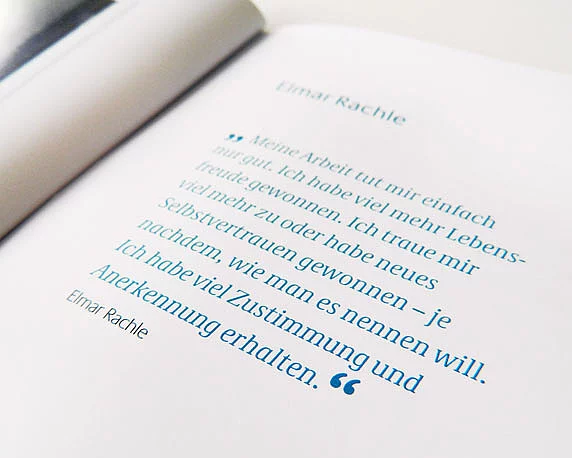 Elmar Rachle
„ Meine Arbeit tut mir einfach
nur gut. Ich habe viel mehr Lebens-
freude gewonnen. Ich traue mir
viel mehr zu oder habe neues
Selbstvertrauen gewonnen – je
nachdem, wie man es nennen will.
Ich habe viel Zustimmung und
Anerkennung erhalten. “
Elmar Rachle